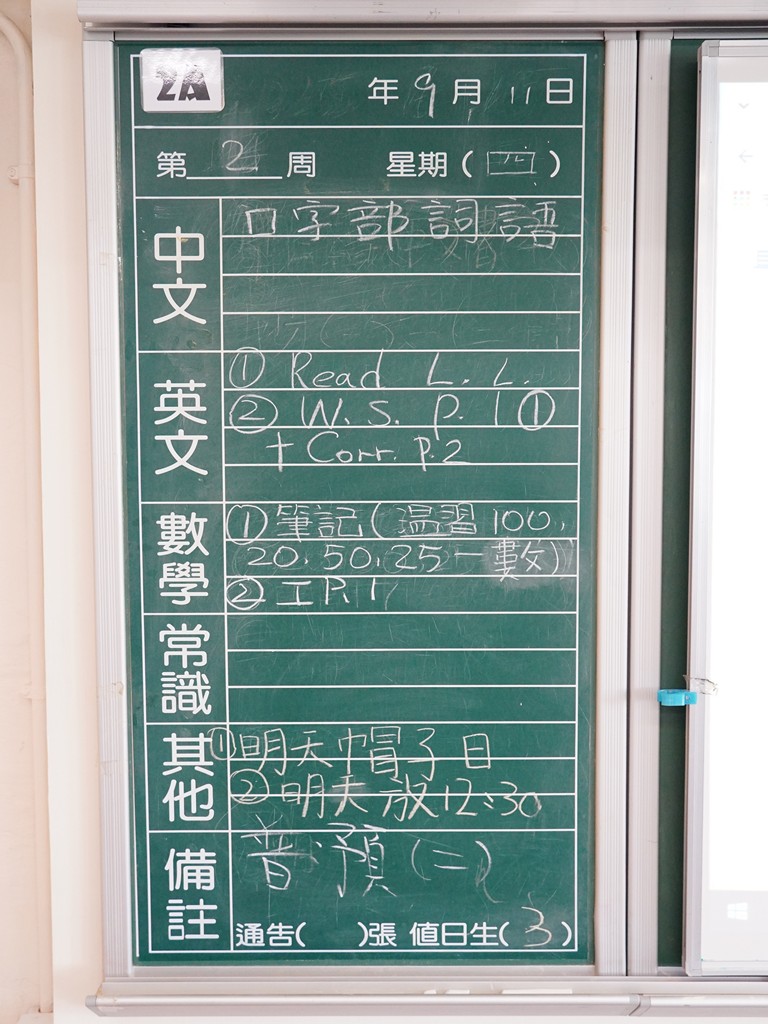 2A
年 9 月 11 日
第 2 周 星期(四)
中文
口字部詞語
英文
① Read L. L.
② W. S. P. 1 ①
+ Corr. P.2
數學
① 筆記(温習100,
20,50,25一數)
② 工P.1
常識
其他
① 明天帽子日
② 明天放12:30
備註
普.預(二)
通告( )張 值日生(3)